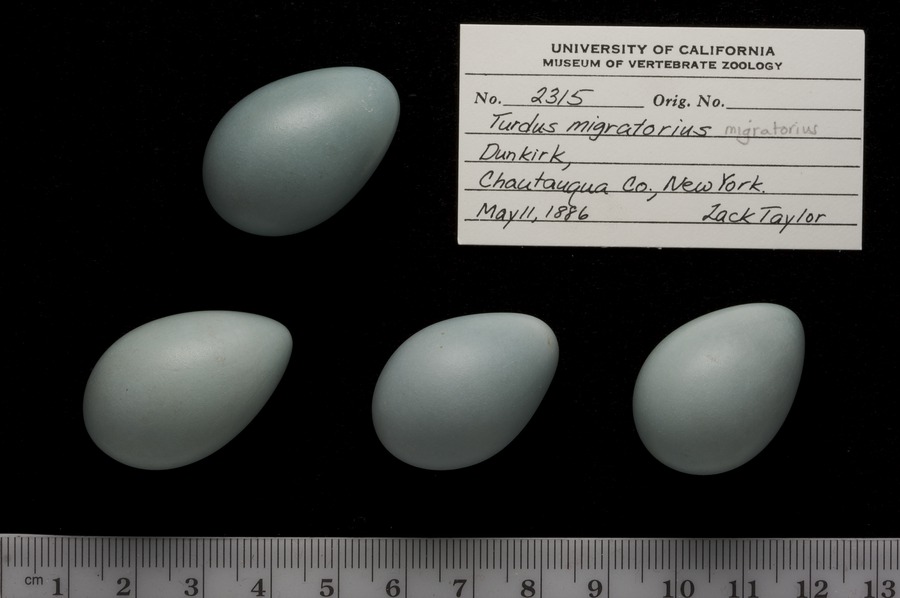 UNIVERSITY OF CALIFORNIA
MUSEUM OF VERTEBRATE ZOOLOGY
No. 2315 Orig. No.
Turdus migratorius migratorius
Dunkirk,
Chautauqua Co., New York.
May 11, 1886 Zack Taylor
cm 1 2 3 4 5 6 7 8 9 10 11 12 13